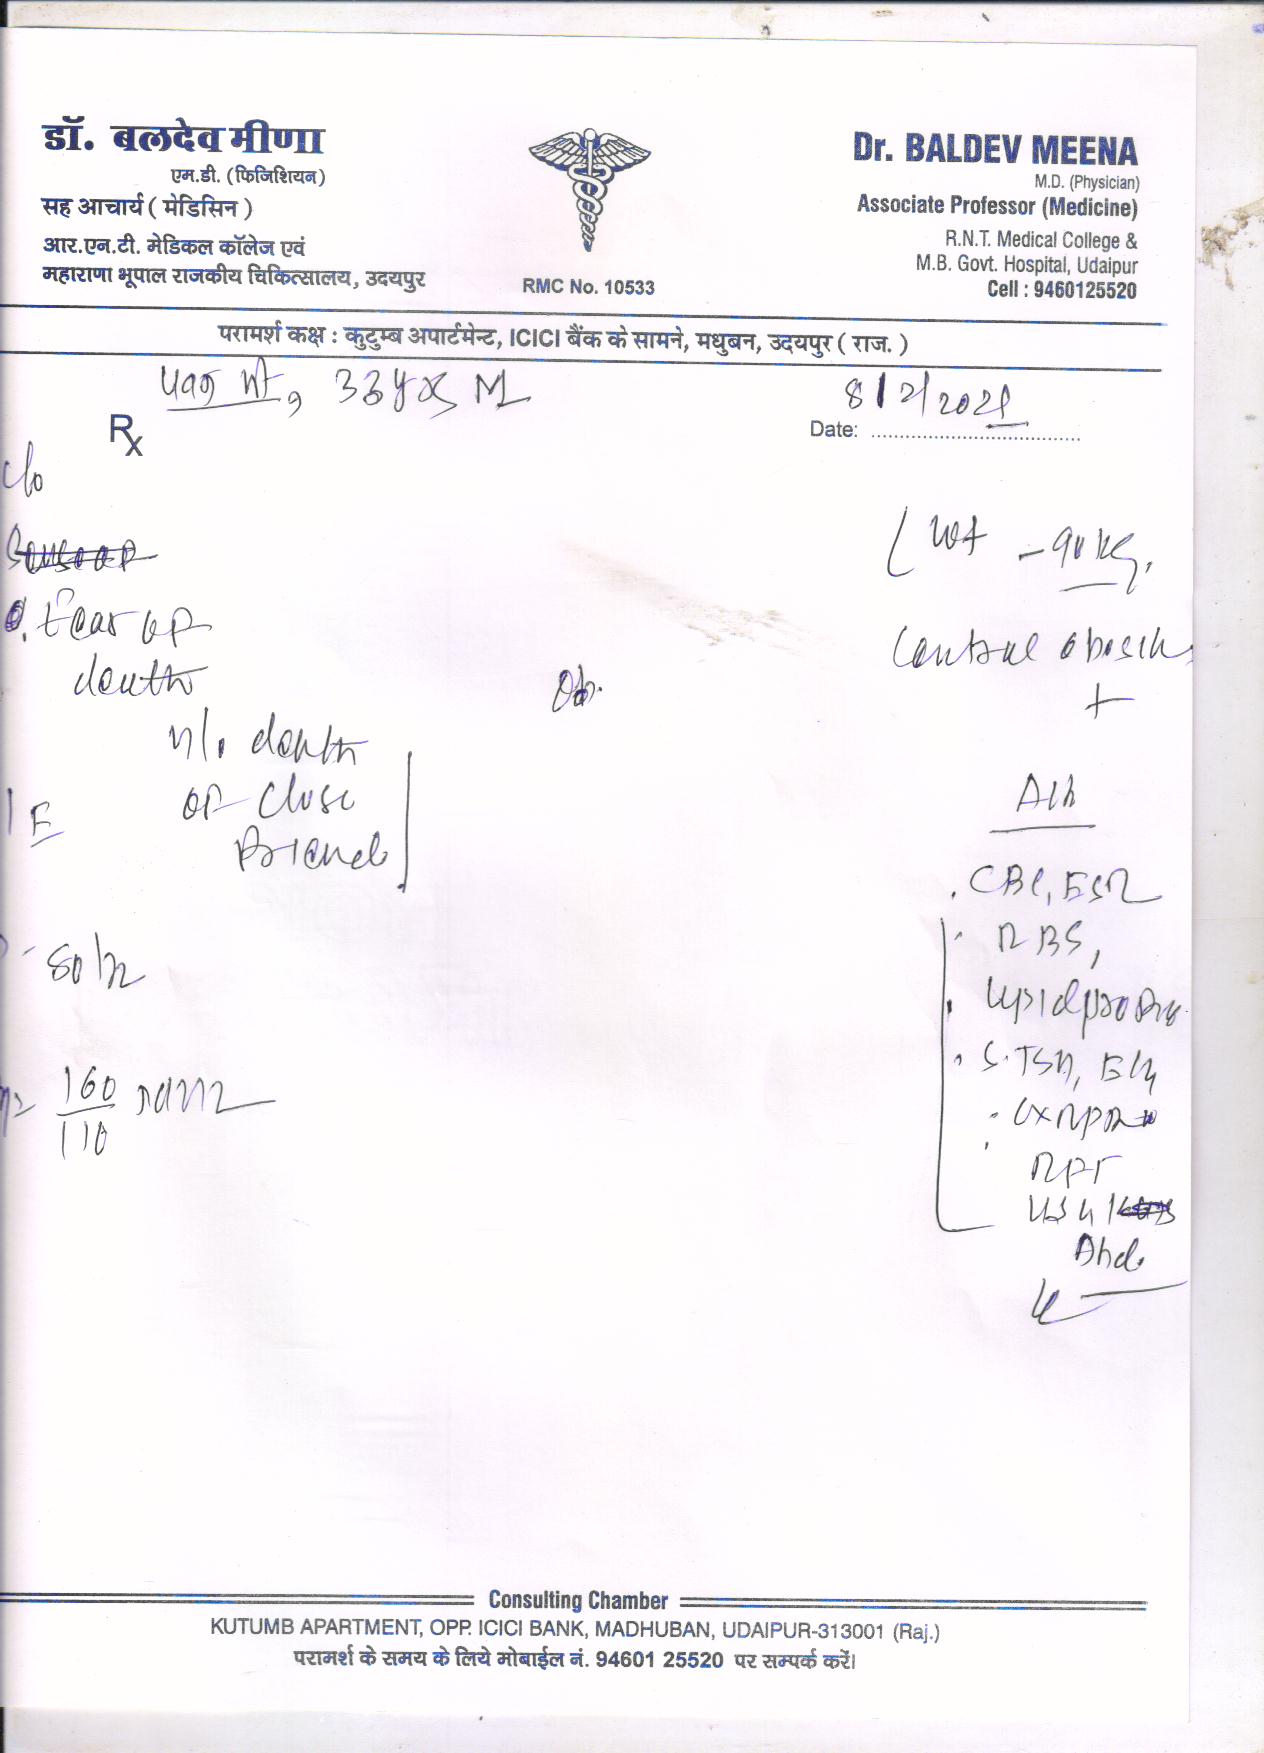 डॉ. बलदेव मीणा
एम.डी. (फिजिशियन)
सह आचार्य ( मेडिसिन )
आर.एन.टी. मेडिकल कॉलेज एवं
महाराणा भूपाल राजकीय चिकित्सालय, उदयपुर
RMC No. 10533
Dr. BALDEV MEENA
M.D. (Physician)
Associate Professor (Medicine)
R.N.T. Medical College &
M.B. Govt. Hospital, Udaipur
Cell : 9460125520
परामर्श कक्ष : कुटुम्ब अपार्टमेन्ट, ICICI बैंक के सामने, मधुबन, उदयपुर ( राज. )
33 yrs M
8/2/2021
Rx
Date:
c/o
Fear of
death
h/o death
of close
friend
80/m
160
110
Wt - 90 kg.
Central obesity
+
Adv
CBC, ESR
RBS,
Lipid profile
S. TSH, ECG
CXR PA
RFT
USG
Abd.
Consulting Chamber
KUTUMB APARTMENT, OPP. ICICI BANK, MADHUBAN, UDAIPUR-313001 (Raj.)
परामर्श के समय के लिये मोबाईल नं. 94601 25520 पर सम्पर्क करें।